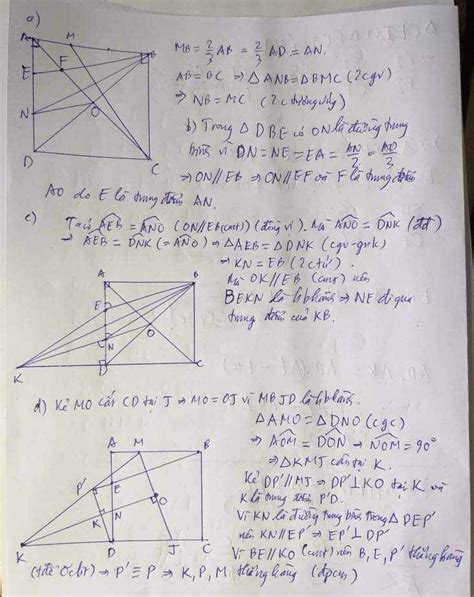 a)
MB = 2/3 AB = 2/3 AD = AN.
AB = BC ⇒ ΔANB = ΔBMC (2cgv)
⇒ NB = MC (2c tương ứng)
b) Trong ΔDBE có ON là đường trung
bình vì DN = NE = EA = AN/2 = AD/3
⇒ ON // EB ⇒ ON // EF và F là trung điểm
AO do E là trung điểm AN.
c) Ta có AEB = ANO (ON // EB (cmt)) (đồng vị). Mà ANO = DNK (đđ)
⇒ AEB = DNK (= ANO) ⇒ ΔAEB = ΔDNK (cgv-gnk)
⇒ KN = EB (2c tứ).
Mà OK // EB (cmt) nên
BEKN là hbhành ⇒ NE đi qua
trung điểm của KB.
d) Kẻ MO cắt CD tại J ⇒ MO = OJ vì MBJD là hbhành.
ΔAMO = ΔDNO (cgc)
⇒ AOM = DON ⇒ NOM = 90°
⇒ ΔKMJ cân tại K.
Kẻ DP' // MJ ⇒ DP' ⊥ KO tại K và
K là trung điểm P'D.
Vì KN là đường trung bình trong ΔDEP'
nên KN // EP' ⇒ EP' ⊥ DP'
Vì BE // KO (cmt) nên B, E, P' thẳng hàng
(tiên đề Ơclit) ⇒ P' ≡ P ⇒ K, P, M thẳng hàng (đpcm)